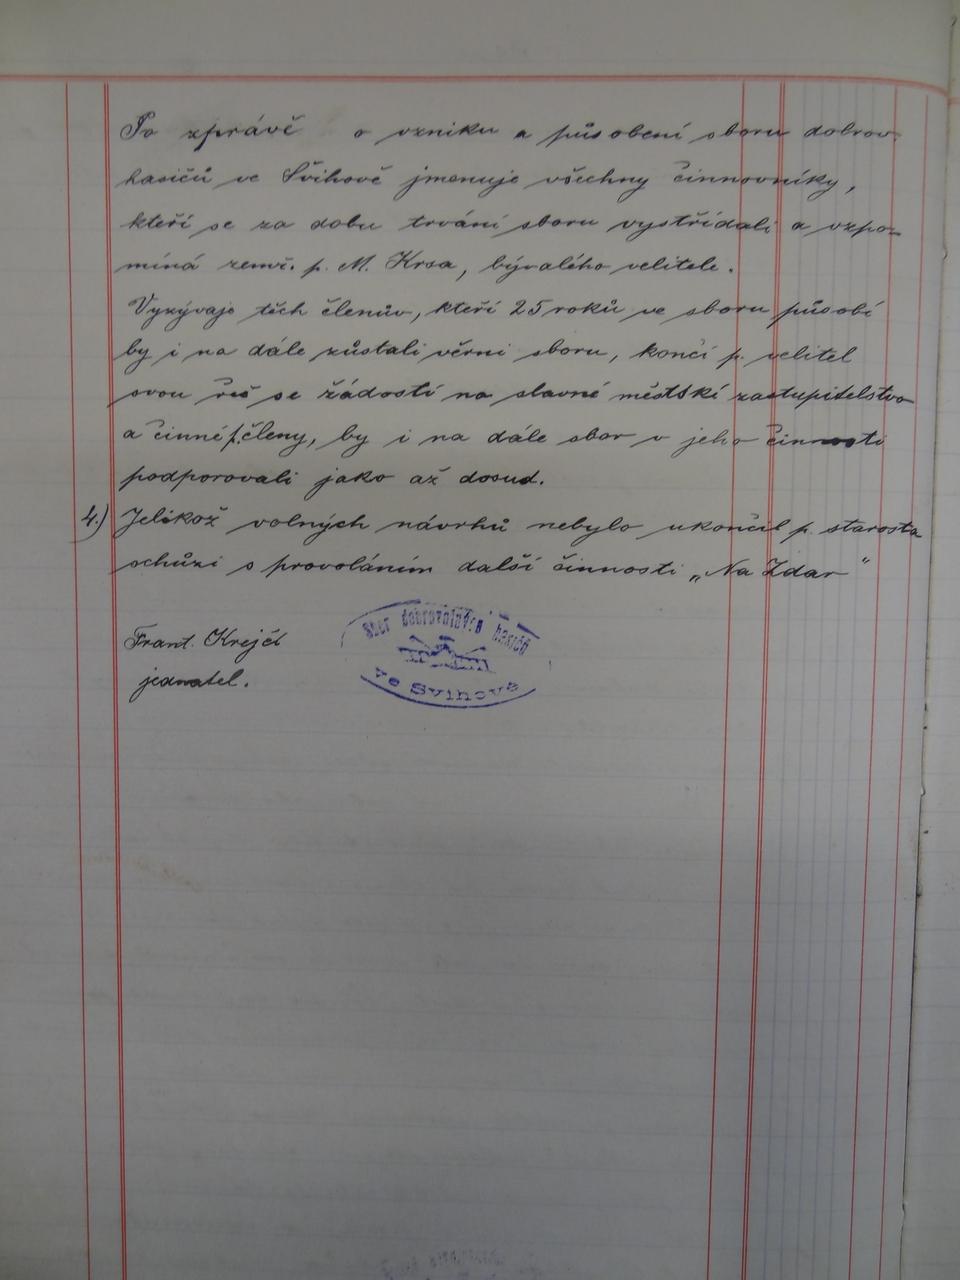 Po zprávě o vzniku a působení sboru dobrov.
hasičů ve Švihově jmenuje všechny činnovníky,
kteří se za dobu trvání sboru vystřídali a vzpo-
míná zemř. p. M. Krsa, bývalého velitele.
Vyzývaje těch členův, kteří 25 roků ve sboru působí
by i na dále zůstali věrni sboru, končí p. velitel
svou řeč se žádostí na slavné městské zastupitelstvo
a činné p. členy, by i na dále sbor v jeho činnosti
podporovali jako až dosud.
4.) Jelikož volných návrhů nebylo ukončil p. starosta
schůzi s provoláním další činnosti „Na Zdar“
Frant. Krejčí
jednatel.
Sbor dobrovolných hasičů
ve Švihově